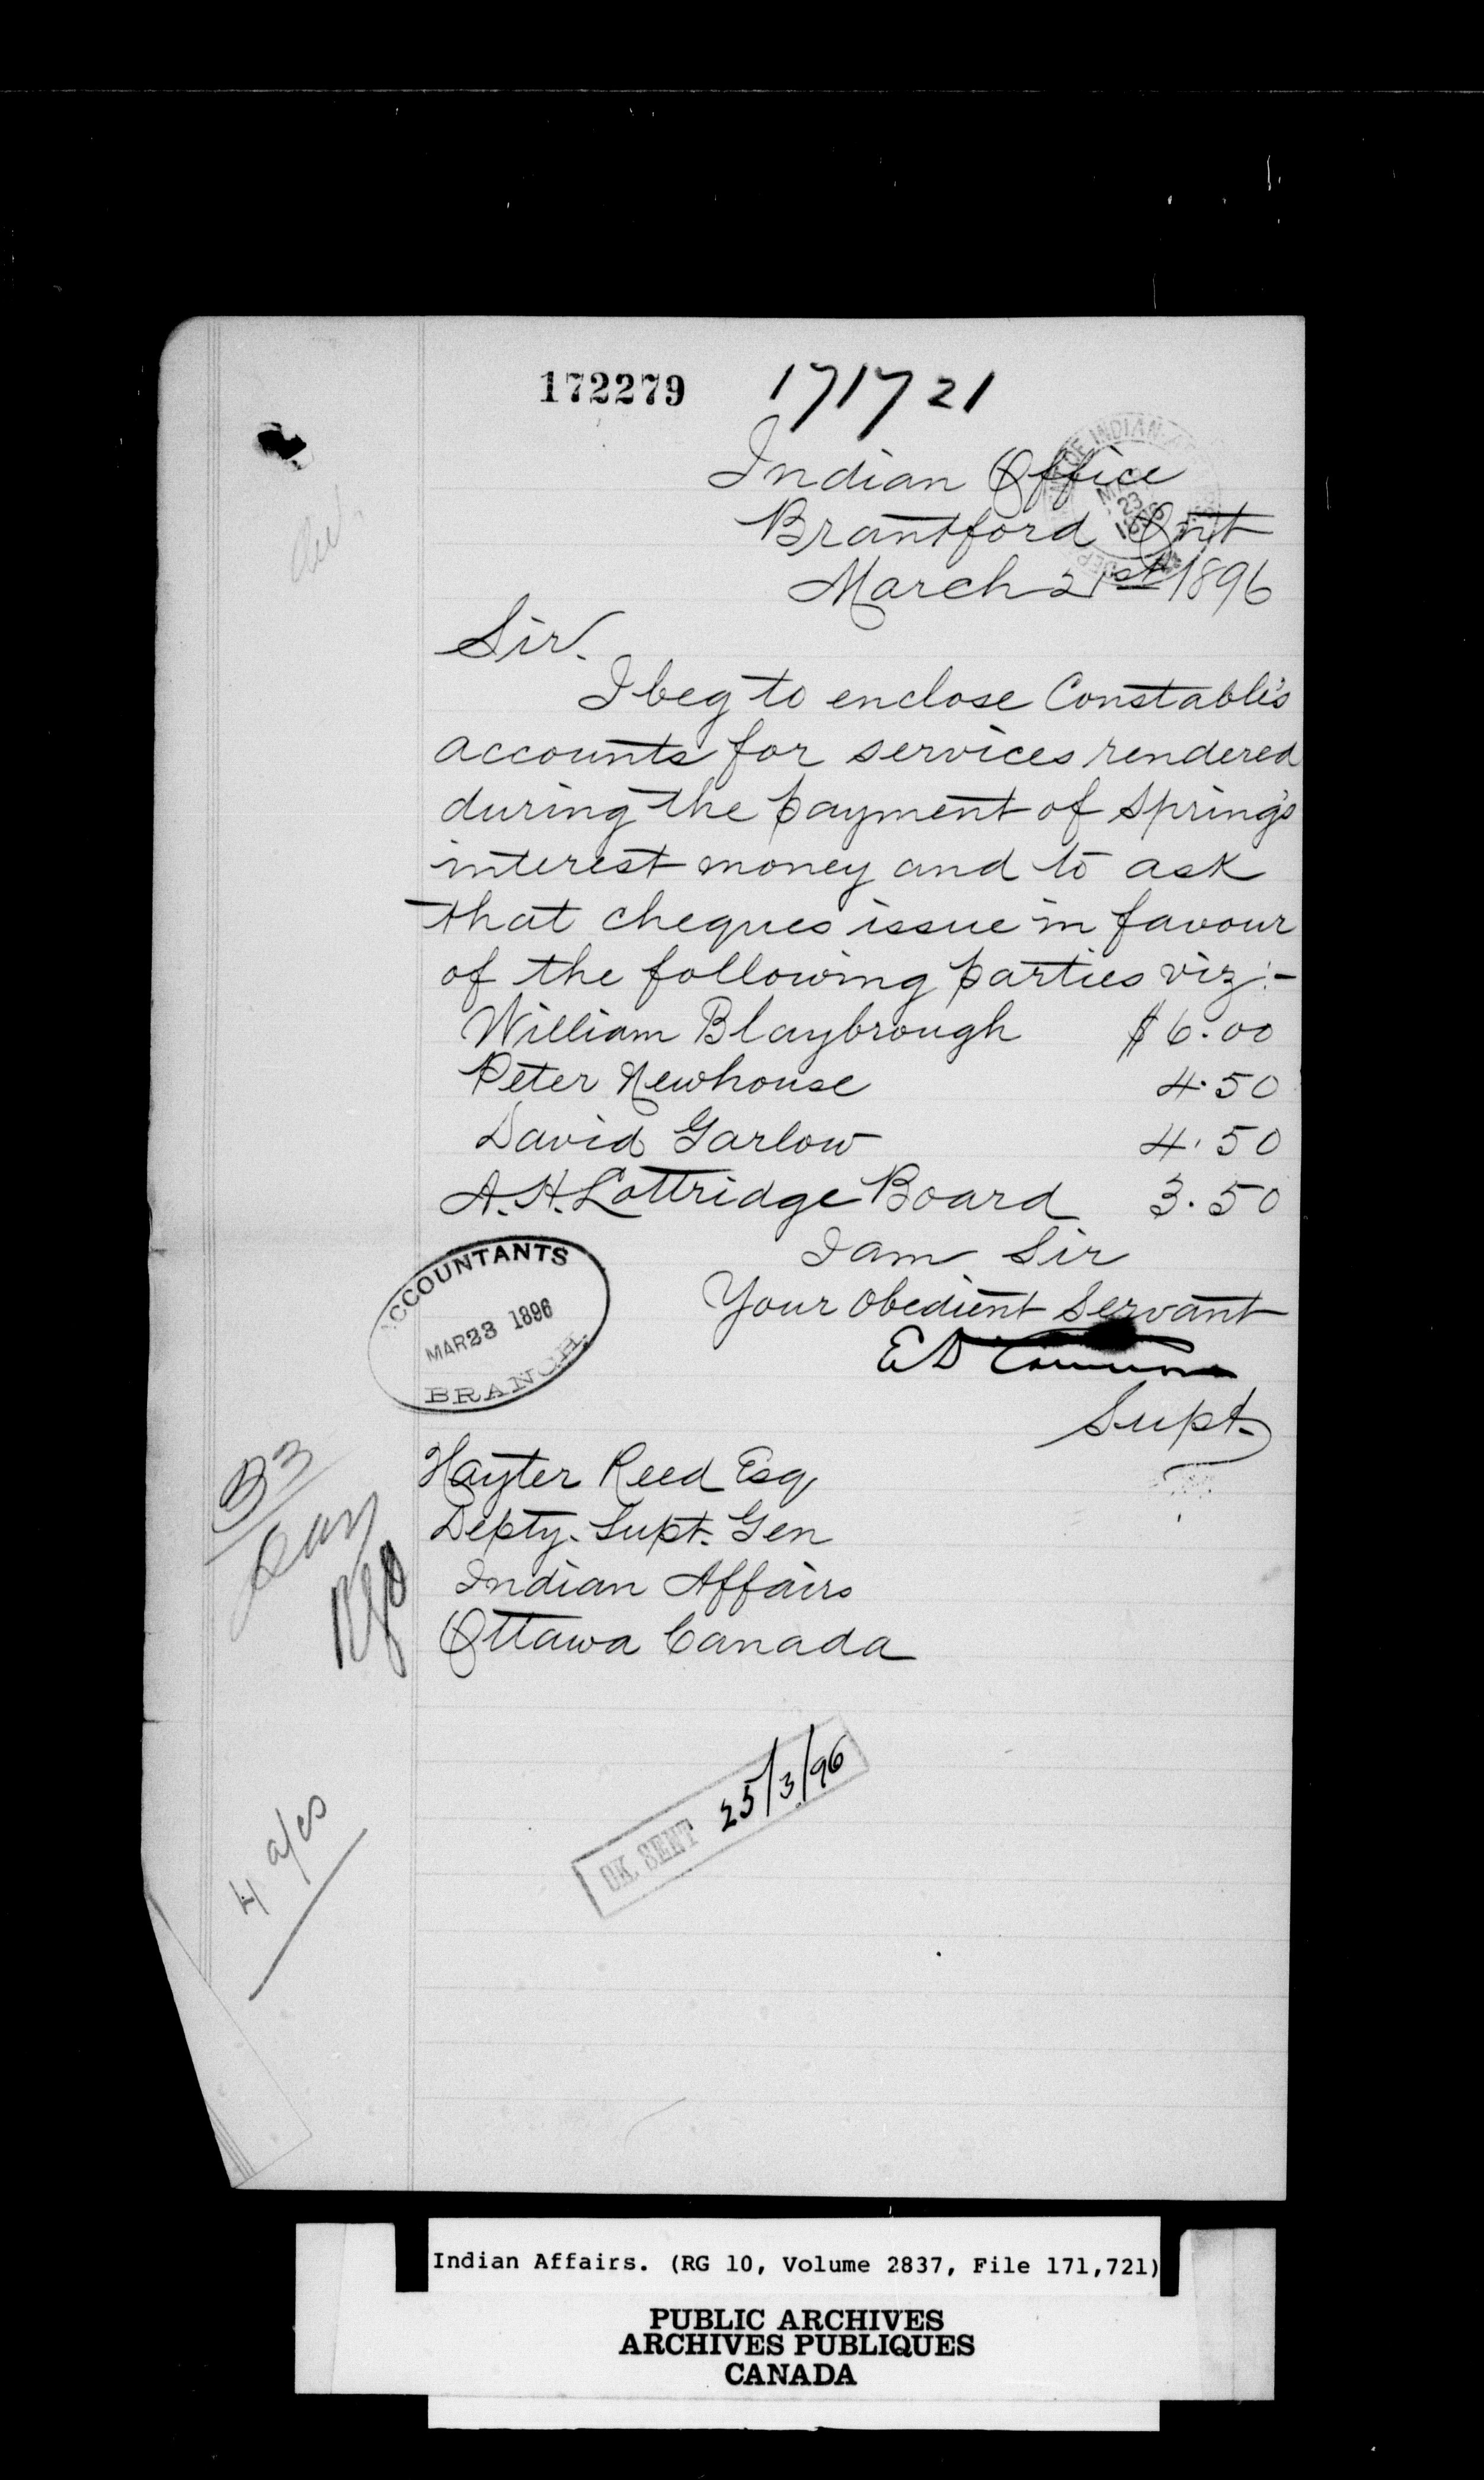 172279 171721
Indian Office
Brantford Ont
March 21st 1896
Sir.
I beg to enclose Constable's
accounts for services rendered
during the payment of Spring's
interest money and to ask
that cheques issue in favour
of the following parties viz:-
William Blaybrough $6.00
Peter Newhouse 4.50
David Garlow 4.50
A.H. Lottridge Board 3.50
I am Sir
Your obedient Servant
E D Cameron
Supt.
ACCOUNTANTS
MAR 23 1896
BRANCH.
Hayter Reed Esq
Depty. Supt. Gen
Indian Affairs
Ottawa Canada
33
4 a/cs
CK. SENT 25/3/96
Indian Affairs. (RG 10, Volume 2837, File 171,721)
PUBLIC ARCHIVES
ARCHIVES PUBLIQUES
CANADA